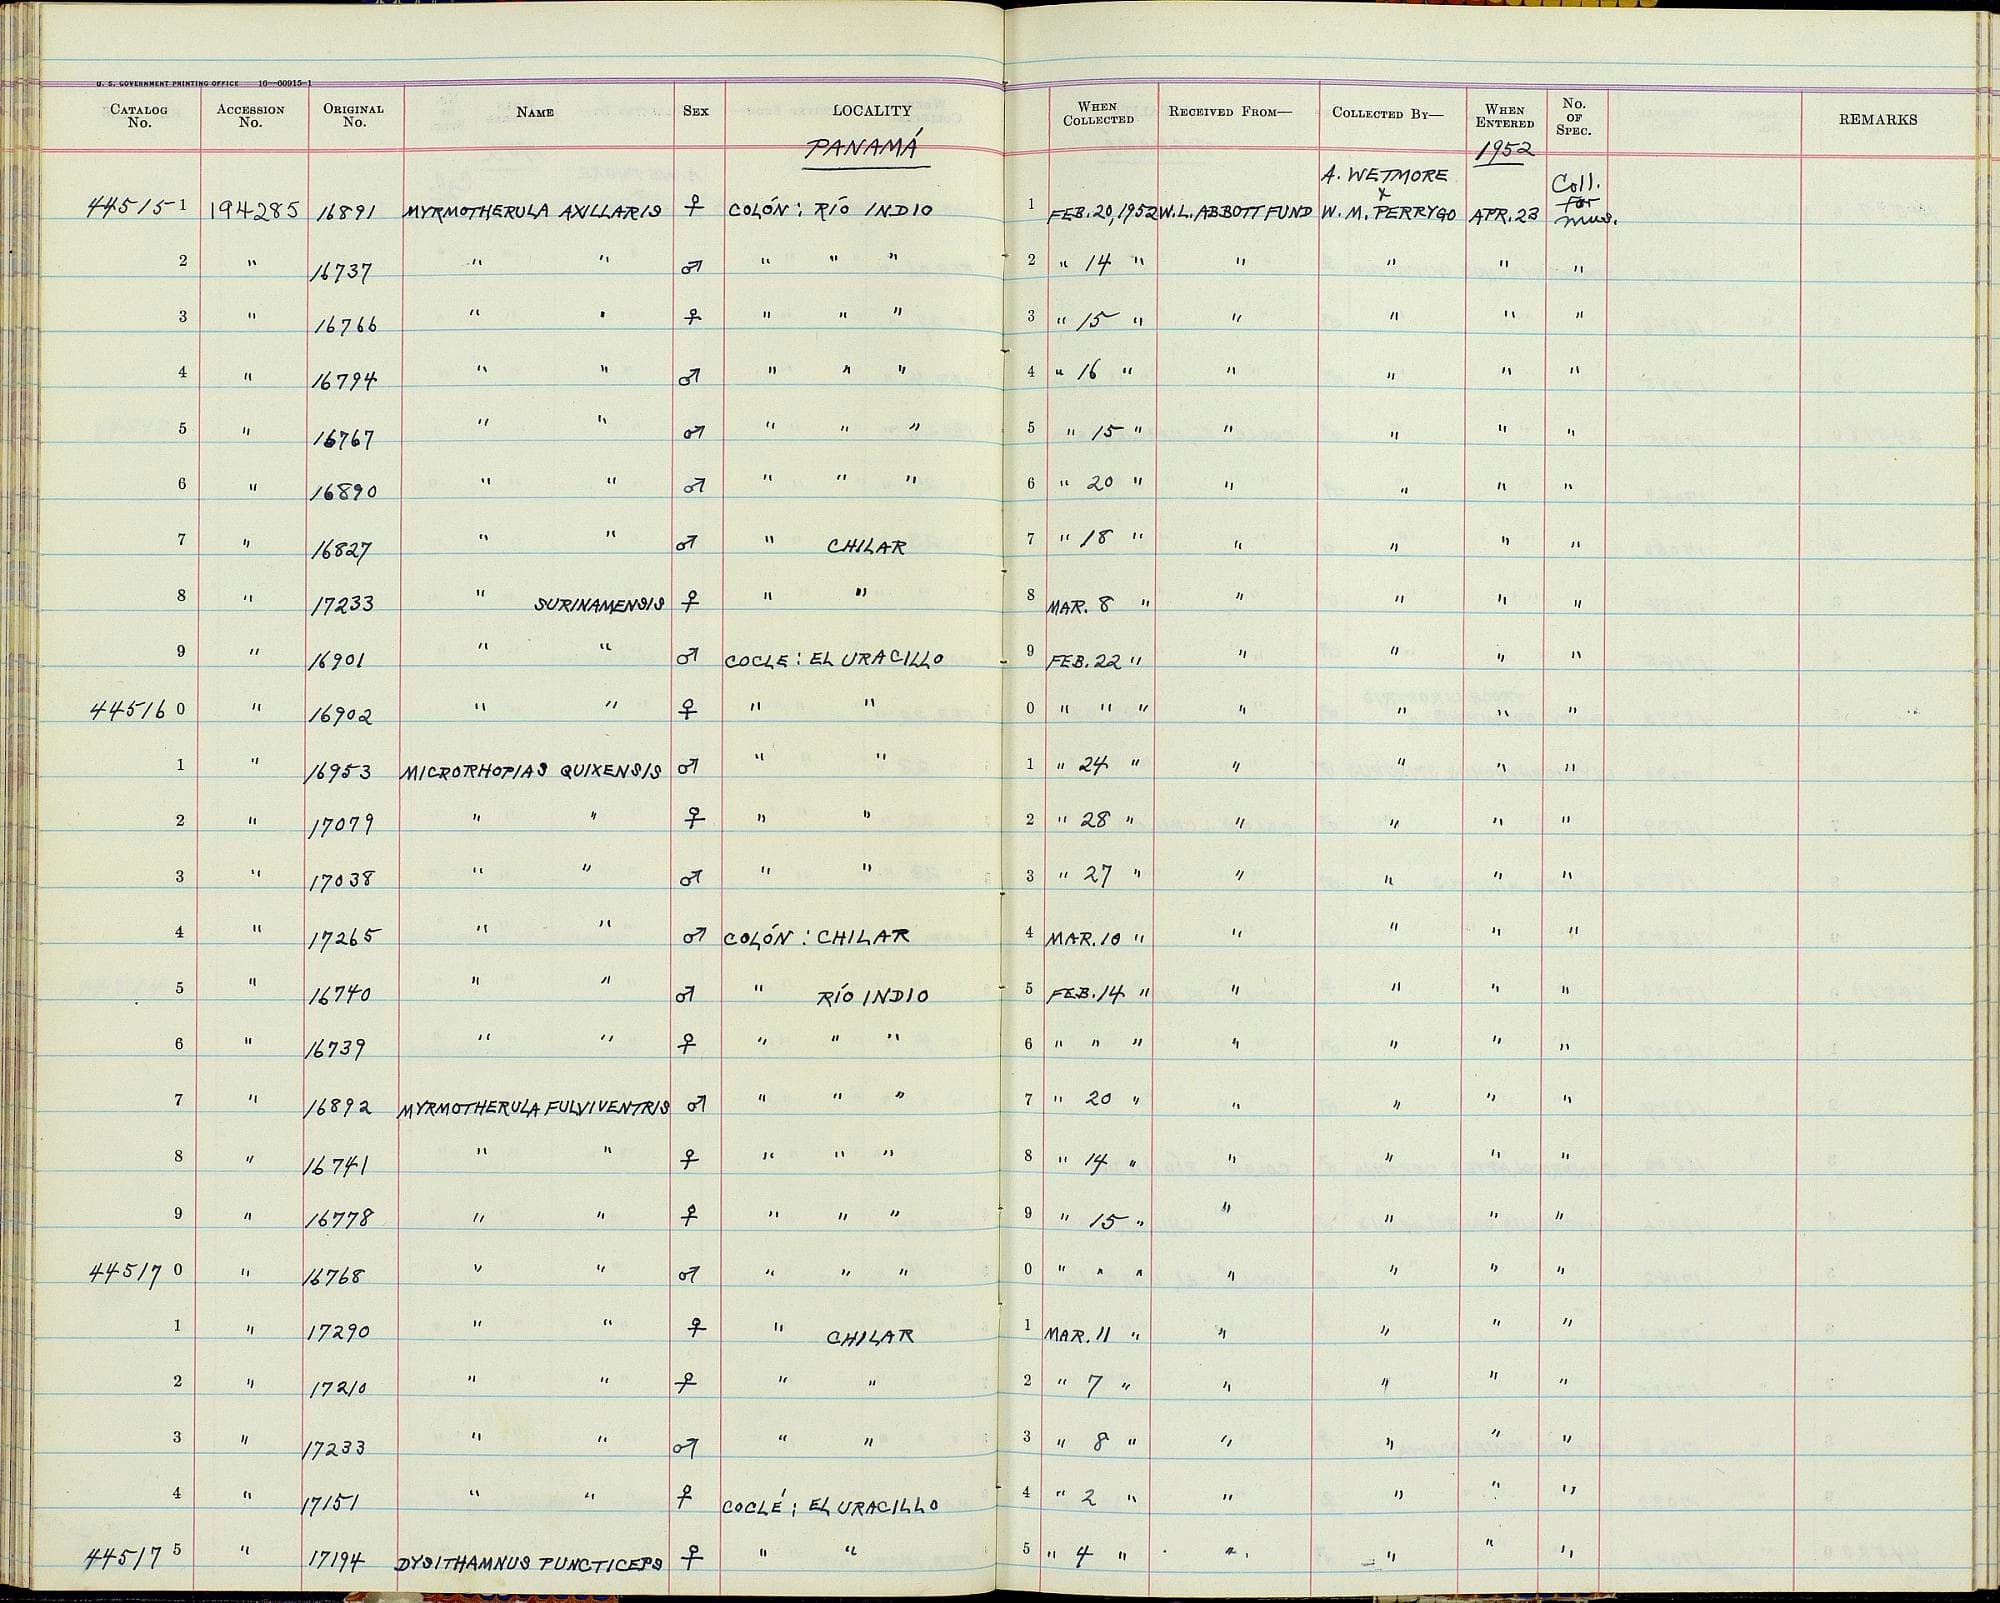 U. S. GOVERNMENT PRINTING OFFICE 16—60915-1
CATALOG No. ACCESSION No. ORIGINAL No. NAME SEX LOCALITY WHEN COLLECTED RECEIVED FROM— COLLECTED BY— WHEN ENTERED NO. OF SPEC. REMARKS
PANAMÁ 1952
445151 194285 16891 MYRMOTHERULA AXILLARIS ♀ COLÓN: RÍO INDIO 1 FEB. 20, 1952 W.L. ABBOTT FUND A. WETMORE & W. M. PERRYGO APR. 23 Coll. For Mus.
2 " 16737 " " ♂ " " " 2 " 14 " " " " "
3 " 16766 " " ♀ " " " 3 " 15 " " " " "
4 " 16794 " " ♂ " " " 4 " 16 " " " " "
5 " 16767 " " ♂ " " " 5 " 15 " " " " "
6 " 16890 " " ♂ " " " 6 " 20 " " " " "
7 " 16827 " " ♂ " CHILAR 7 " 18 " " " " "
8 " 17233 " SURINAMENSIS ♀ " " 8 MAR. 8 " " " " "
9 " 16901 " " ♂ COCLE: EL URACILLO 9 FEB. 22 " " " " "
445160 " 16902 " " ♀ " " 0 " " " " " " "
1 " 16953 MICRORHOPIAS QUIXENSIS ♂ " " 1 " 24 " " " " "
2 " 17079 " " ♀ " " 2 " 28 " " " " "
3 " 17038 " " ♂ " " 3 " 27 " " " " "
4 " 17265 " " ♂ COLÓN: CHILAR 4 MAR. 10 " " " " "
5 " 16740 " " ♂ " RÍO INDIO 5 FEB. 14 " " " " "
6 " 16739 " " ♀ " " " 6 " " " " " " "
7 " 16892 MYRMOTHERULA FULVIVENTRIS ♂ " " " 7 " 20 " " " " "
8 " 16741 " " ♀ " " " 8 " 14 " " " " "
9 " 16778 " " ♀ " " " 9 " 15 " " " " "
445170 " 16768 " " ♂ " " " 0 " " " " " " "
1 " 17290 " " ♀ " CHILAR 1 MAR. 11 " " " " "
2 " 17210 " " ♀ " " 2 " 7 " " " " "
3 " 17233 " " ♂ " " 3 " 8 " " " " "
4 " 17151 " " ♀ COCLÉ: EL URACILLO 4 " 2 " " " " "
445175 " 17194 DYSITHAMNUS PUNCTICEPS ♀ " " 5 " 4 " " " " "